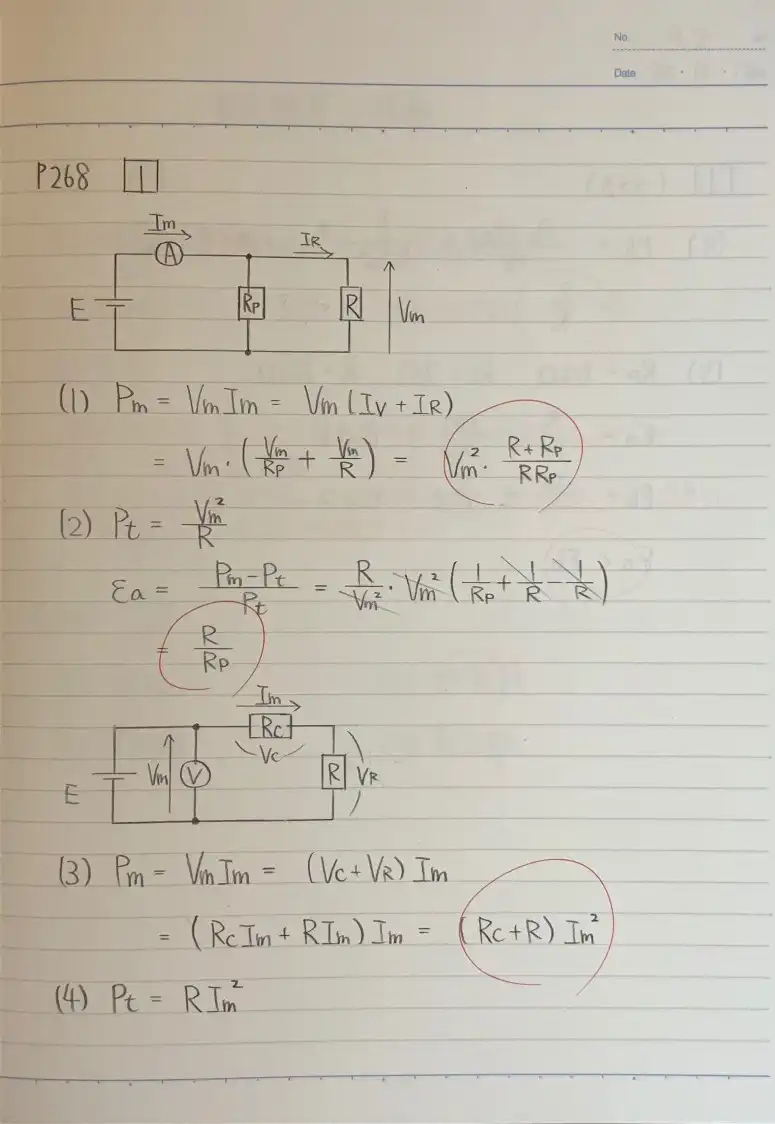 No.
Date
P268 1
Im
A
IR
E
Rp
R
Vm
(1) Pm = Vm Im = Vm (Iv + IR)
= Vm・(Vm/Rp + Vm/R) = Vm²・(R+Rp)/(RRp)
(2) Pt = Vm²/R
εa = (Pm-Pt)/Pt = R/Vm²・Vm²(1/Rp + 1/R - 1/R)
= R/Rp
Im
Rc
Vc
E
Vm
V
R
VR
(3) Pm = Vm Im = (Vc + VR) Im
= (Rc Im + R Im) Im = (Rc + R) Im²
(4) Pt = R Im²